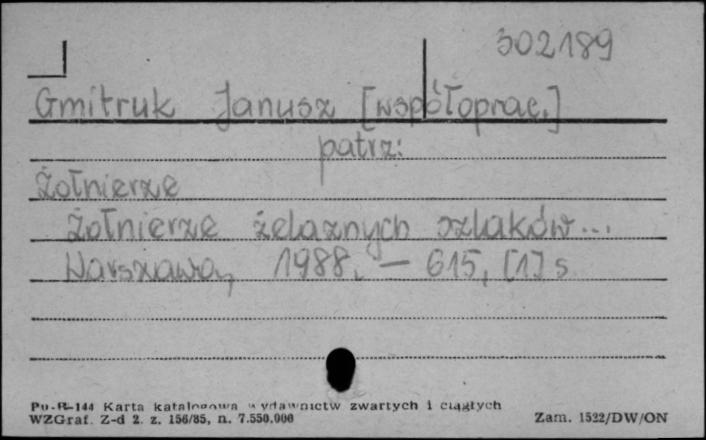 302189
Gmitruk Janusz [współoprac.]
patrz:
Żołnierze
Żołnierze żelaznych szlaków...
Warszawa, 1988. – 615, [1] s
Pu-R-144 Karta katalogowa wydawnictw zwartych i ciągłych
WZGraf. Z-d 2. z. 156/85, n. 7.550.000
Zam. 1522/DW/ON